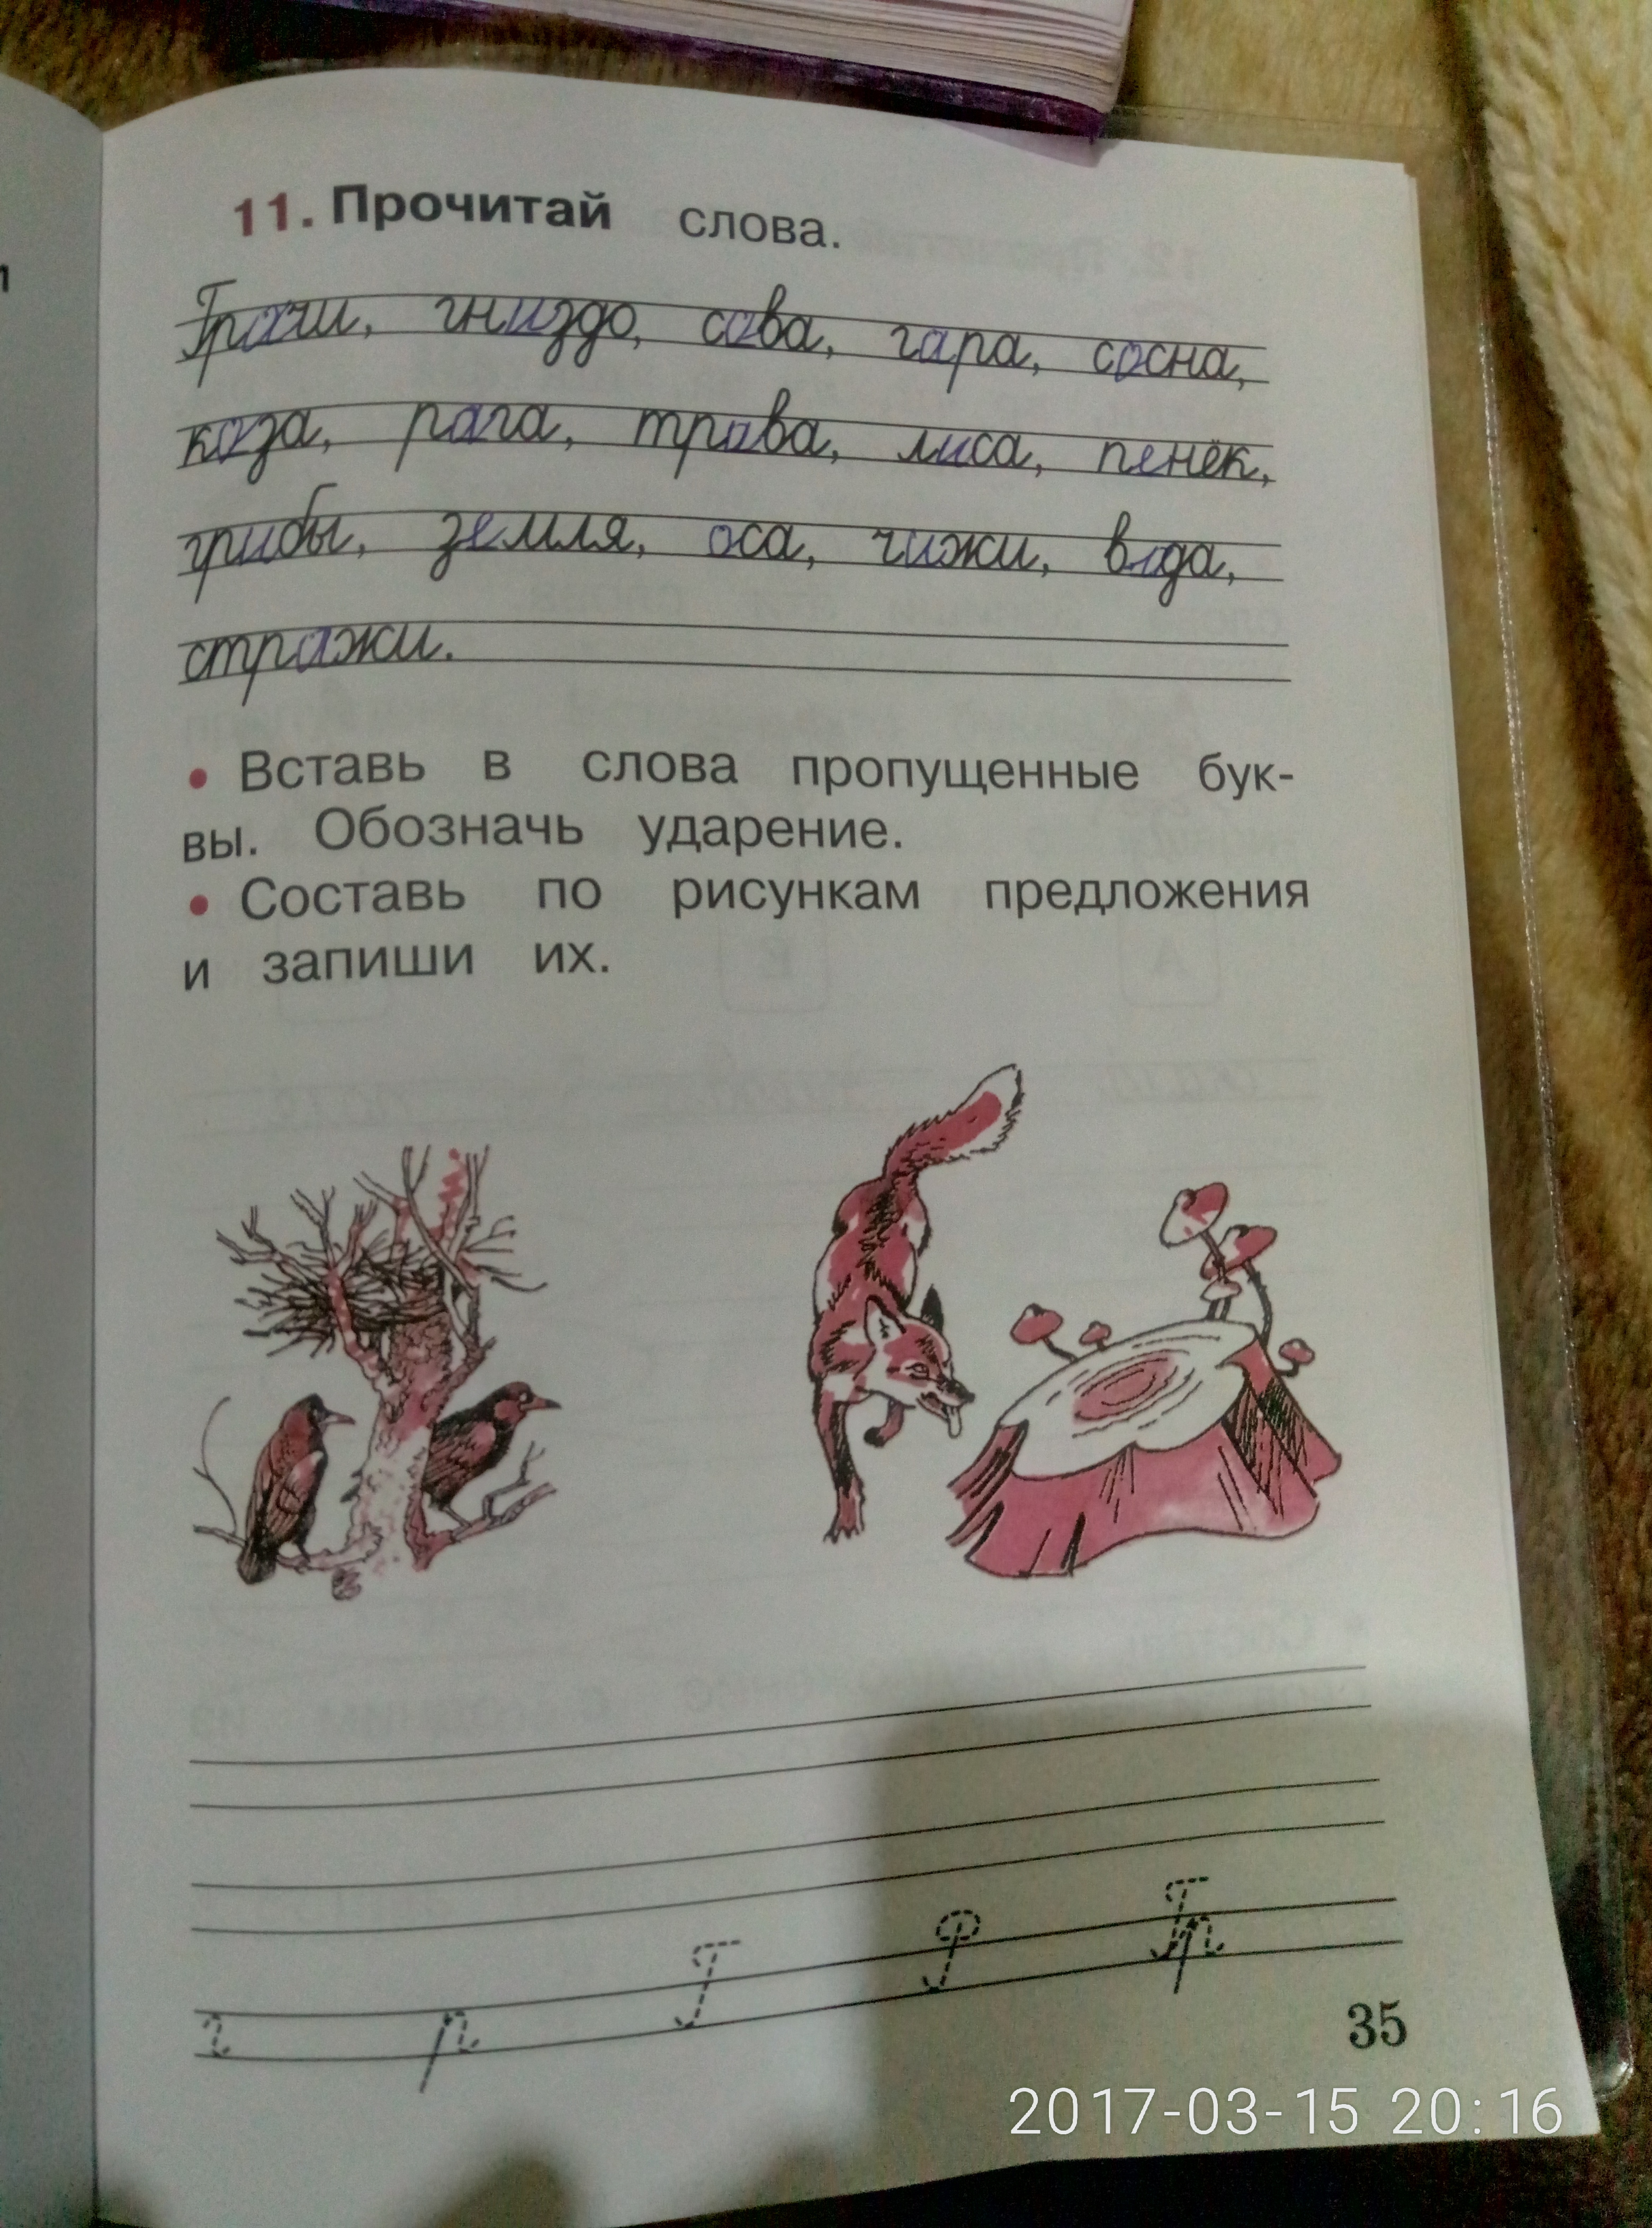 11. Прочитай слова.
Грачи, гниздо, сова, гара, сосна,
коза, рага, трава, лиса, пенёк,
грибы, земля, оса, чижи, вода,
стражи.
• Вставь в слова пропущенные бук-
вы. Обозначь ударение.
• Составь по рисункам предложения
и запиши их.
г р Г Р Гр
35
2017-03-15 20:16